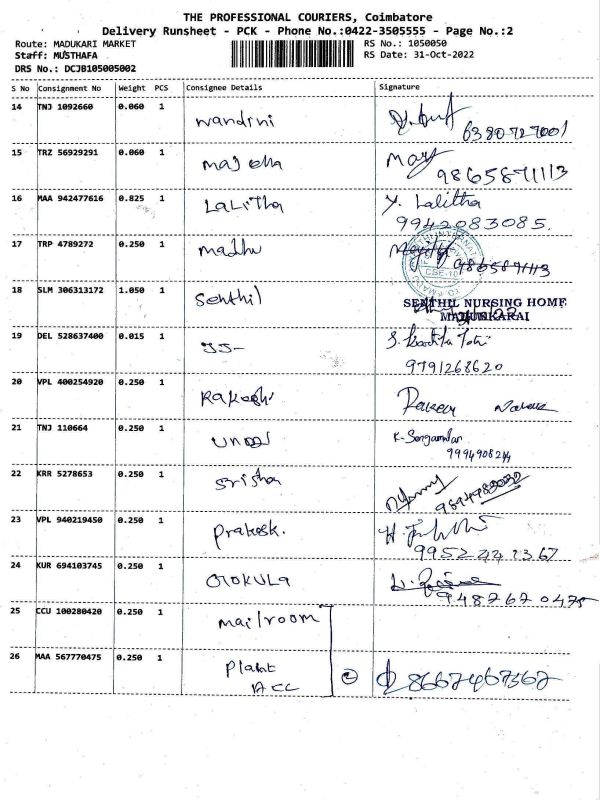 THE PROFESSIONAL COURIERS, Coimbatore
Delivery Runsheet - PCK - Phone No.:0422-3505555 - Page No.:2
Route: MADUKARI MARKET RS No.: 1050050
Staff: MUSTHAFA RS Date: 31-Oct-2022
DRS No.: DCJB105005002
S No Consignment No Weight PCS Consignee Details Signature
14 TNJ 1092660 0.060 1 Nandini
6380727001
15 TRZ 56929291 0.060 1 Majeeha
9865871113
16 MAA 942477616 0.825 1 LaLitha Y. Lalitha
9942083085.
17 TRP 4789272 0.250 1 madhu
9865871113
18 SLM 306313172 1.050 1 Senthil
SENTHIL NURSING HOME
MADUKKARAI
19 DEL 528637400 0.015 1
9791268620
20 VPL 400254920 0.250 1 Rakesh
21 TNJ 110664 0.250 1
22 KRR 5278653 0.250 1
23 VPL 940219450 0.250 1 Prakash.
24 KUR 694103745 0.250 1 GOKULA
25 CCU 100280420 0.250 1 mailroom
26 MAA 567770475 0.250 1 Plant 2 8667467367
ACC